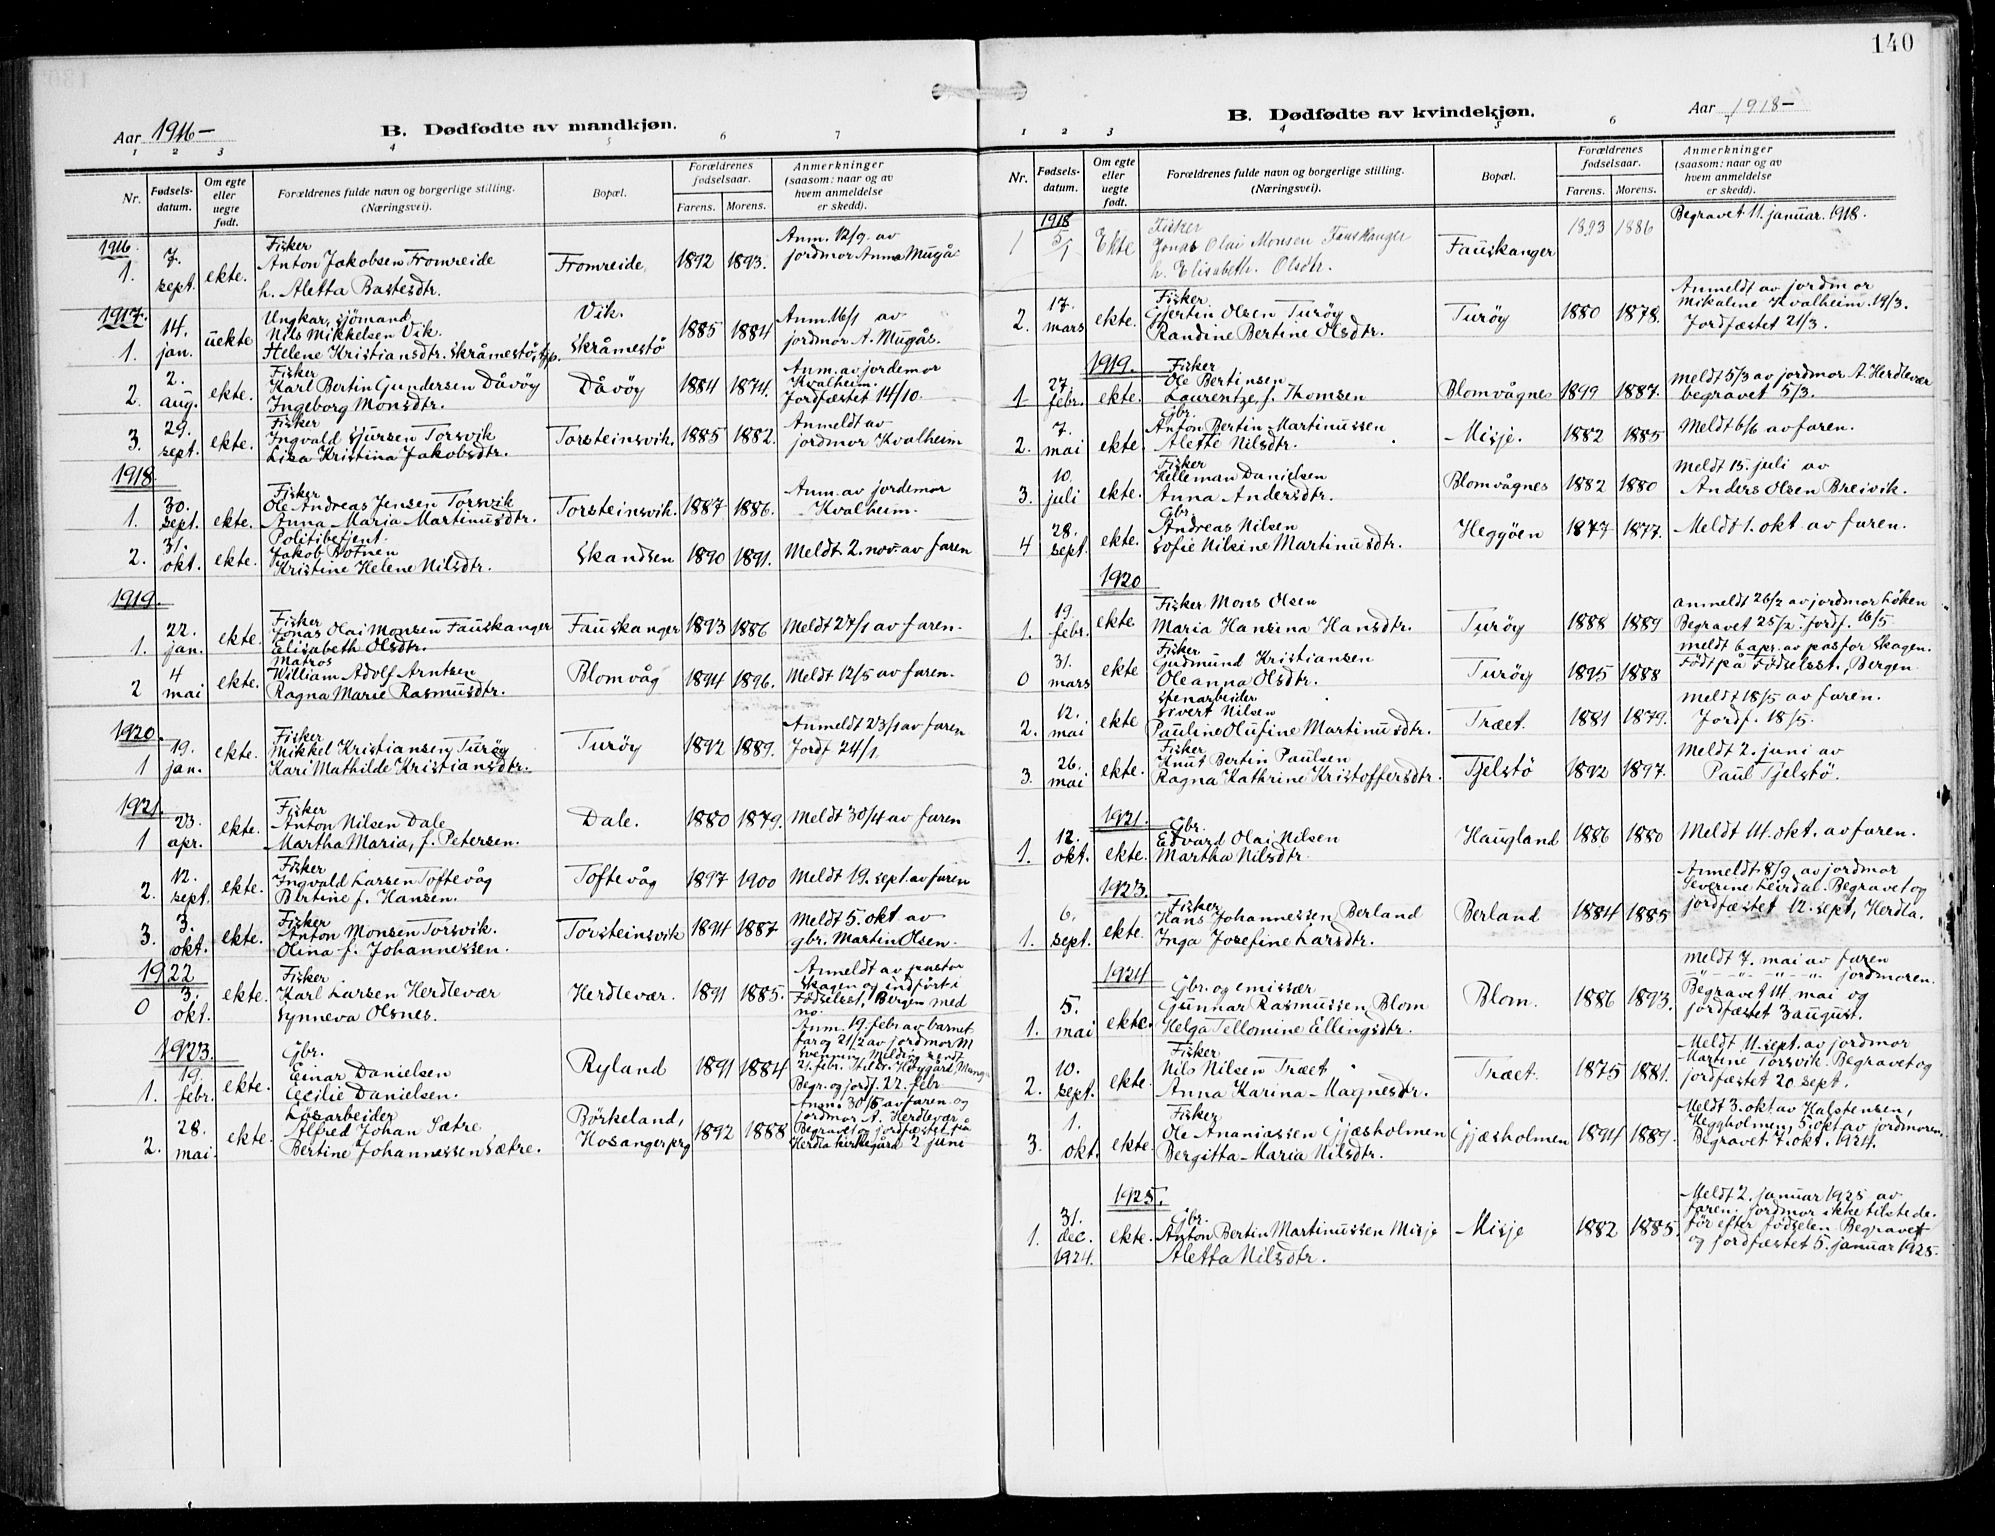 140
Aar 1916—
B. Dødfødte av mandkjøn.
1 2 3 4 5 6 7
Nr.
Fødsels-
datum.
Om egte
eller
uegte
født.
Forældrenes fulde navn og borgerlige stilling.
(Næringsvei).
Bopæl.
Forældrenes
fødselsaar.
Farens. Morens.
Anmerkninger
(saasom: naar og av
hvem anmeldelse
er skedd).
1916.
1. 7. sept. ekte.
Fisker
Anton Jakobsen Fromreide
h. Aletta Bastesdtr.
Fromreide, 1892 1893.
Anm. 12/9. av
jordmor Anna Mugås
1917.
1. 14. jan. uekte
Ungkar, sjömand
Nils Mikkelsen Vik.
Helene Kristiansdtr. Skråmestö,
Vik.
Skråmestö
1885 1884
Anm. 16/1 av
jordmor A. Mugås.
2. 2. aug. ekte.
Fisker
Karl Bertin Gundersen Dåvöy
Ingeborg Monsdtr.
Dåvöy 1884 1874.
Anm. av jordemor
Kvalheim.
Jordfæstet 14/10.
3. 29. sept. ekte.
Fisker
Ingvald Sjursen Torsvik
Lisa Kristina Jakobsdtr.
Torsteinsvik. 1885 1882.
Anmeldt av
jordmor Kvalheim
1918.
1. 30. sept. ekte.
Fisker
Ole Andreas Jensen Torsvik
Anna Maria Martinusdtr.
Torsteinsvik. 1887 1886.
Anm. av jordemor
Kvalheim.
2. 31. okt. ekte.
Politibetjent.
Jakob Botnen
Kristine Helene Nilsdtr.
Skandsen 1890 1891.
Meldt 2. nov. av faren
1919.
1. 22. jan. ekte.
Fisker
Jonas Olai Monsen Fauskanger
Elisabeth Olsdtr.
Fauskanger 1893 1886
Meldt 27/1 av faren.
2 4 mai ekte.
Matros
William Adolf Arntsen
Ragna Marie Rasmusdtr.
Blomvåg 1894 1896.
Meldt 12/5 av faren.
1920.
1 19. jan. ekte.
Fisker
Mikkel Kristiansen, Turöy
Kari Mathilde Kristiansdtr.
Turöy 1892 1889.
Anmeldt 23/1 av faren
Jordf 24/1.
1921.
1 23. apr. ekte.
Fisker
Anton Nilsen Dale
Martha Maria, f. Petersen.
Dale. 1880 1879.
Meldt 30/4 av faren
2. 12. sept. ekte.
Fisker
Ingvald Larsen Toftevåg
Bertine f. Hansen.
Toftevåg 1897 1900
Meldt 19. sept. av faren
3. 3. okt. ekte.
Fisker
Anton Monsen Torsvik.
Olina f. Johannessen.
Torsteinsvik 1894 1887
Meldt 5. okt av
gbr. Martin Olsen.
1922
0 3. okt. ekte.
Fisker
Karl Larsen Herdlevær
Synneva Olsnes.
Herdlevær. 1891 1885.
Anmeldt av pastor
Skagen og indfört i
Födselsst, Bergen med
no.
1923.
1. 19. febr. ekte.
Gbr.
Einar Danielsen
Cecilie Danielsen.
Ryland 1891 1884
Anm. 19. febr. av barnets
far og 21/2 av jordmor M
Svenning. Melding sendt
Begr. og jordf. 22. febr
2. 28. mai ekte.
Lösarbeider
Alfred Johan Sætre
Bertine Johannessen Sætre.
Börkeland,
Hosanger prg
1892 1888
Anm. 30/5 av faren og
jordmor A. Herdlevær.
Begravet og jordfæstet på
Herdla kirkegård 2 juni
Aar 1918—
B. Dødfødte av kvindekjøn.
1 2 3 4 5 6 7
Nr.
Fødsels-
datum.
Om egte
eller
uegte
født.
Forældrenes fulde navn og borgerlige stilling.
(Næringsvei).
Bopæl.
Forældrenes
fødselsaar.
Farens. Morens.
Anmerkninger
(saasom: naar og av
hvem anmeldelse
er skedd).
1918
1 5/1 Ekte
Fisker
Jonas Olai Monsen Fauskanger
h. Elisabeth. Olsdtr.
Fauskanger 1893 1886
Begravet 11. januar. 1918.
2. 17. mars ekte.
Fisker
Gjertin Olsen Turöy
Randine Bertine Olsdtr.
Turöy 1880 1878.
Anmeldt av jordmor
Mikaline Kvalheim 19/3.
Jordfæstet 21/3.
1919.
1 27. febr. ekte.
Fisker
Ole Bertinsen
Laurentze, f. Thomsen
Blomvågnes 1899 1887.
Meldt 5/3 av jordmor A. Herdlevær
begravet 5/3.
2. 7. mai ekte.
Gbr.
Anton Bertin Martinussen
Alette Nilsdtr.
Misje. 1882 1885
Meldt 6/6 av faren.
3. 10. juli ekte.
Fisker
Kelleman Danielsen
Anna Andersdtr.
Blomvågnes 1882 1880
Meldt 15. juli av
Anders Olsen Breivik.
4 28. sept. ekte.
Gbr.
Andreas Nilsen
Sofie Nilsine Martinusdtr.
Hegyöen 1877 1877.
Meldt 1. okt av faren.
1920
1. 19. febr. ekte
Fisker Mons Olsen
Maria Hansina Hansdtr.
Turöy 1888 1889
Anmeldt 26/2 av jordmor Löken
Begravet 25/2. jordf. 16/5
0 31. mars ekte
Fisker
Gudmund Kristiansen
Oleanna Olsdtr.
Turöy 1895 1888
Meldt 6 apr. av pastor Skagen.
Födt på Födselsst., Bergen
2. 12. mai ekte
Stenarbeider.
Sivert Nilsen
Pauline Olufine Martinusdtr.
Træet. 1881 1879.
Meldt 18/5 av faren.
Jordf. 18/5.
3. 26. mai ekte.
Fisker
Knut Bertin Paulsen
Ragna Kathrine Kristoffersdtr.
Tjelstö 1892 1897.
Meldt 2. juni av
Paul Tjelstö.
1921.
1. 12. okt. ekte.
Gbr.
Edvard Olai Nilsen
Martha Nilsdtr.
Haugland 1886 1880
Meldt 14. okt. av faren.
1923.
1. 6. sept. ekte.
Fisker
Hans Johannessen, Berland
Inga Josefine Larsdtr.
Berland 1884 1885
Anmeldt 8/9 av jordmor
Severine Leirdal. Begravet og
jordfæstet 12. sept, Herdla.
1924
1. 5. mai ekte.
Gbr. og emissær
Gunnar Rasmussen Blom
Helga Tellomine Ellingsdtr.
Blom. 1886 1893.
Meldt 7. mai av faren
—"— —"— —"— jordmoren.
Begravet 14. mai og
jordfæstet 3 august.
2. 10. sept. ekte.
Fisker
Nils Nilsen Træet
Anna Karina Magnesdtr.
Træet. 1875 1881.
Meldt 11. sept. av jordmor
Martine Torsvik. Begravet og
jordfæstet 20. sept.
3. 1. okt. ekte.
Fisker
Ole Ananiassen Gjæsholmen
Bergitta Maria Nilsdtr.
Gjæsholmen 1894 1889.
Meldt 3. okt av Halstensen,
Heggholmen, 5. okt av jordmoren.
Begravet 7. okt. 1924.
1925.
1. 31. dec. 1924. ekte.
Gbr.
Anton Bertin Martinussen Misje
Aletta Nilsdtr.
Misje 1882 1885.
Meldt 2. januar 1925 av
faren. Jordmor ikke tilstede.
för efter födselen. Begravet
og jordfæstet 5. januar 1925.